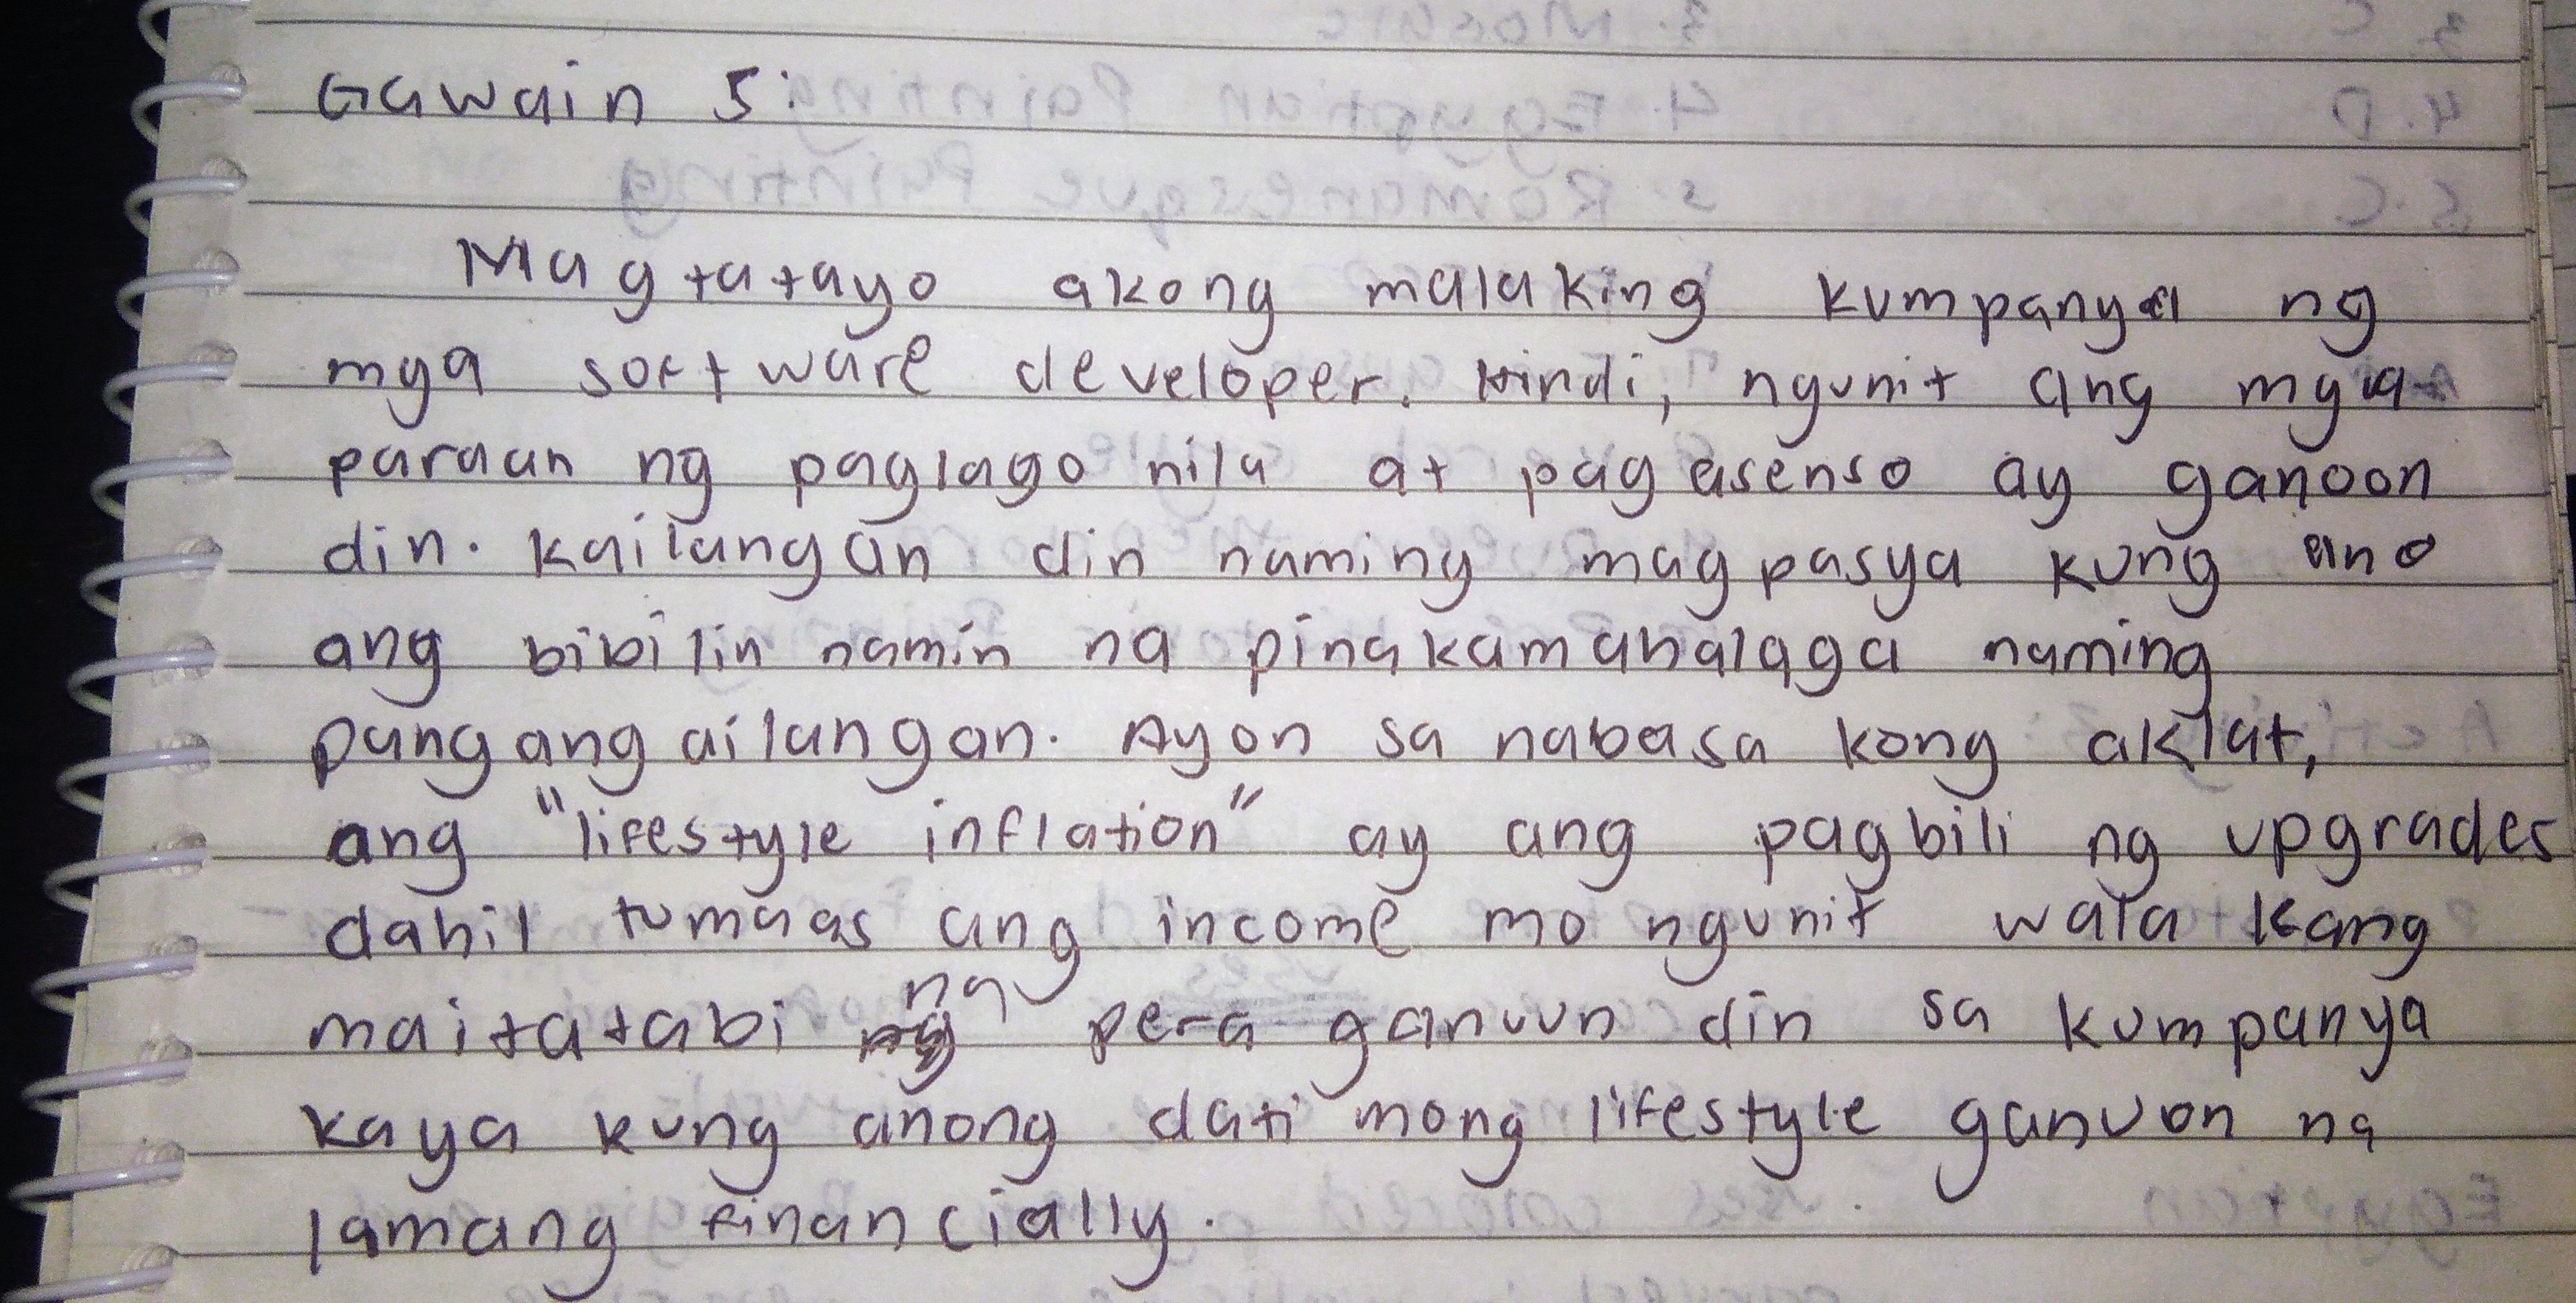 Gawain 5:
Magtatayo akong malaking kumpanya ng
mga software developer. Hindi, ngunit ang mga
paraan ng paglago nila at pag asenso ay ganoon
din. Kailangan din naming magpasya kung ano
ang bibilin namin na pinakamahalaga naming
pangangailangan. Ayon sa nabasa kong aklat,
ang "lifestyle inflation" ay ang pagbili ng upgrades
dahil tumaas ang income mo ngunit wala kang
maitatabi na pera ganuun din sa kumpanya
kaya kung anong dati mong lifestyle ganuon na
lamang financially.